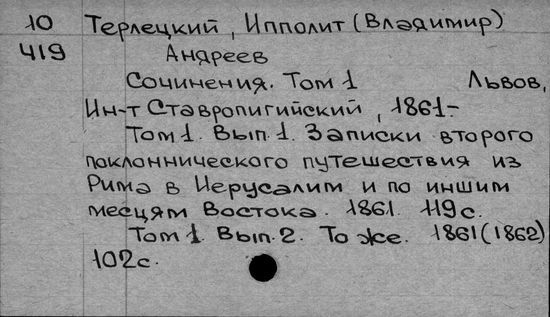 10 Терлецкий, Ипполит (Владимир)
419 Андреев
Сочинения. Том 1 Львов,
Ин-т Ставропигийский, 1861-
Том 1. Вып. 1. Записки второго
поклоннического путешествия из
Рима в Иерусалим и по иншим
месцям Востока. 1861. 119 с.
Том 1. Вып. 2. То же. 1861 (1862)
102 с.